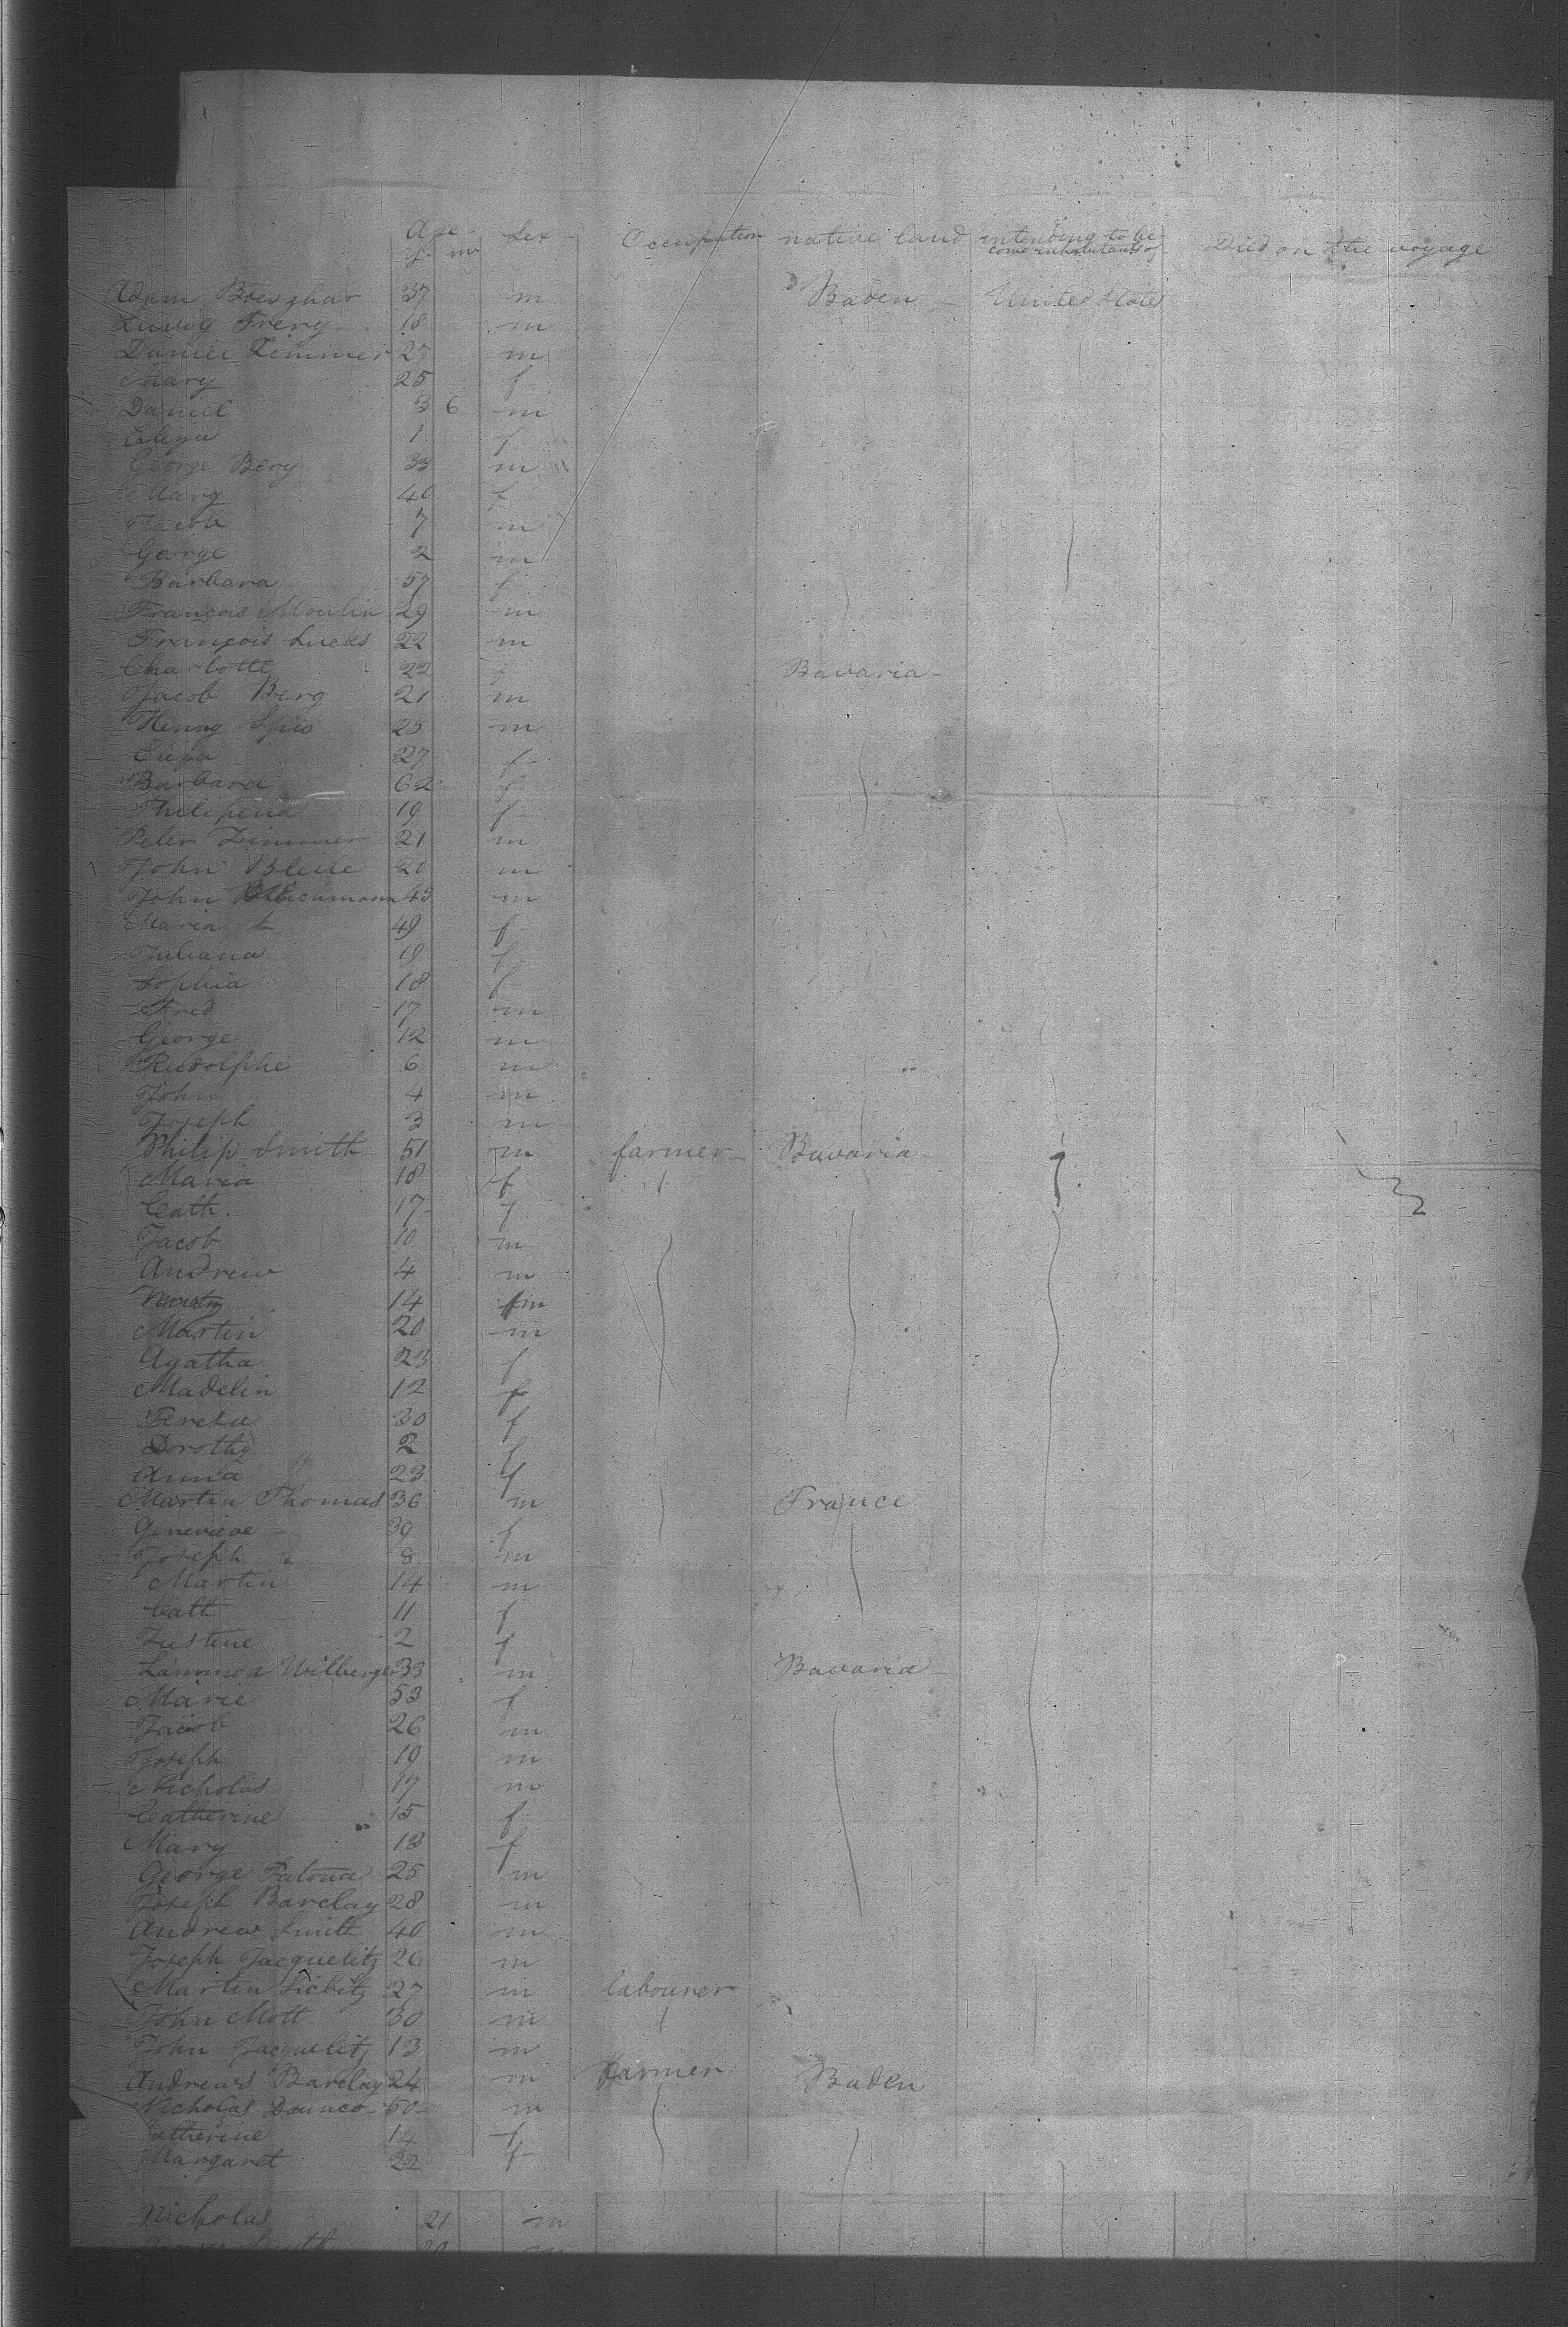 Age Sex Occupation native land intending to be
y. m come inhabitants of Died on the voyage
Adam 37 m Baden United States
Ludwig Freng 18 m
Daniel Zimmer 27 m
Mary 25 f
Daniel 3 6 m
Eliza 1 f
George Berg 33 m
Marg 40 f
Jacob 7 m
George 2 m
Barbara 57 f
François Moulin 29 m
François Lucks 22 m
Charlotte 22 f Bavaria
Jacob Berg 21 m
Henry Spies 25 m
Eliza 27 f
Barbara 62 f
Philipina 19 f
Peter Zimmer 21 m
John Bleile 20 m
John 45 m
Maria 49 f
Juliana 19 f
Sophia 18 f
Fred 17 m
George 12 m
Rudolphe 6 m
John 4 m
Joseph 3 m
Philip Smith 51 m farmer Bavaria
Maria 18 f
Cath. 17 f
Jacob 10 m
Andrew 4 m
14 m
Martin 20 m
Agatha 23 f
Madelin 12 f
Teresa 30 f
Dorothy 2 f
Anna 23 f
Martin Thomas 36 m France
Genevieve 39 f
Joseph 8 m
Martin 14 m
Cath 11 f
Justine 2 f
Wilberger 33 m Bavaria
Marie 53 f
Jacob 26 m
Joseph 19 m
Nicholas 17 m
Catherine 15 f
Mary 18 f
George 25 m
Joseph Barclay 28 m
Andrew Smith 40 m
Joseph Jacquelitz 26 m
Martin 27 m labourer
John Mott 30 m
John Jacquelitz 13 m
Andrews Barclay 24 m farmer Baden
Nicholas 50 m
Catherine 14 f
Margaret 22 f
Nicholas 21 m